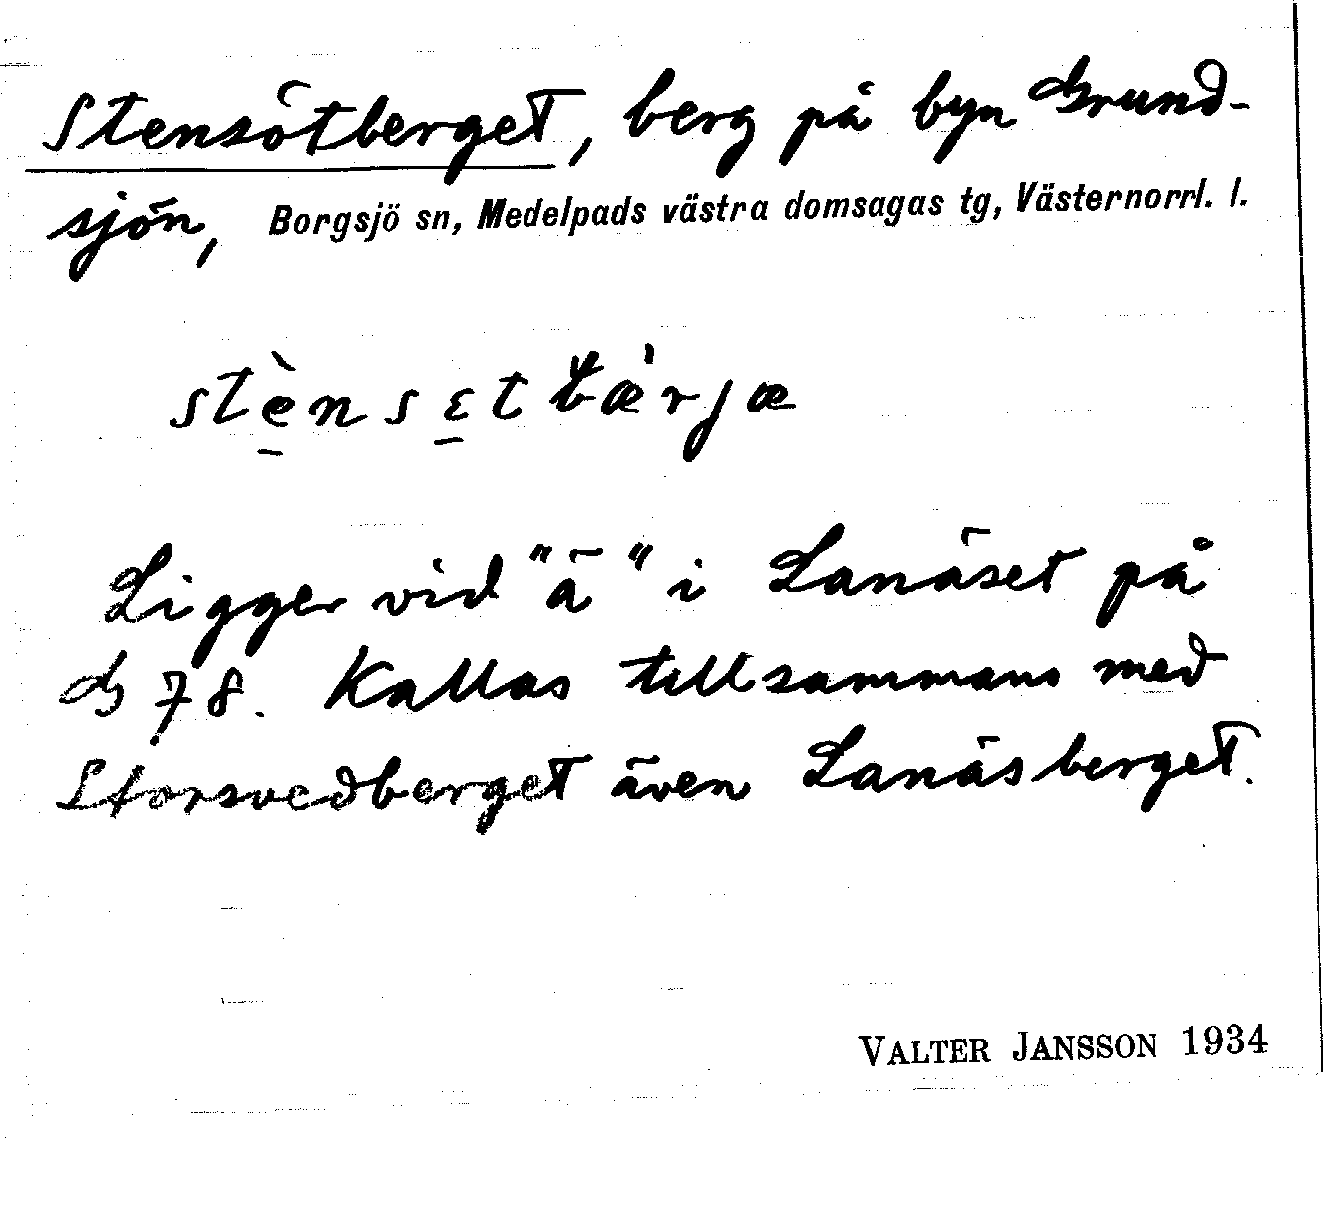 Stensötberget, berg på byn Grund-
sjön, Borgsjö sn, Medelpads västra domsagas tg, Västernorrl. l.
stè̱nsɛ̱tbæ̀rjæ
Ligger vid "ä" i Lanäset på
G 78. Kallas tillsammans med
Storsvedberget även Lanäsberget.
VALTER JANSSON 1934